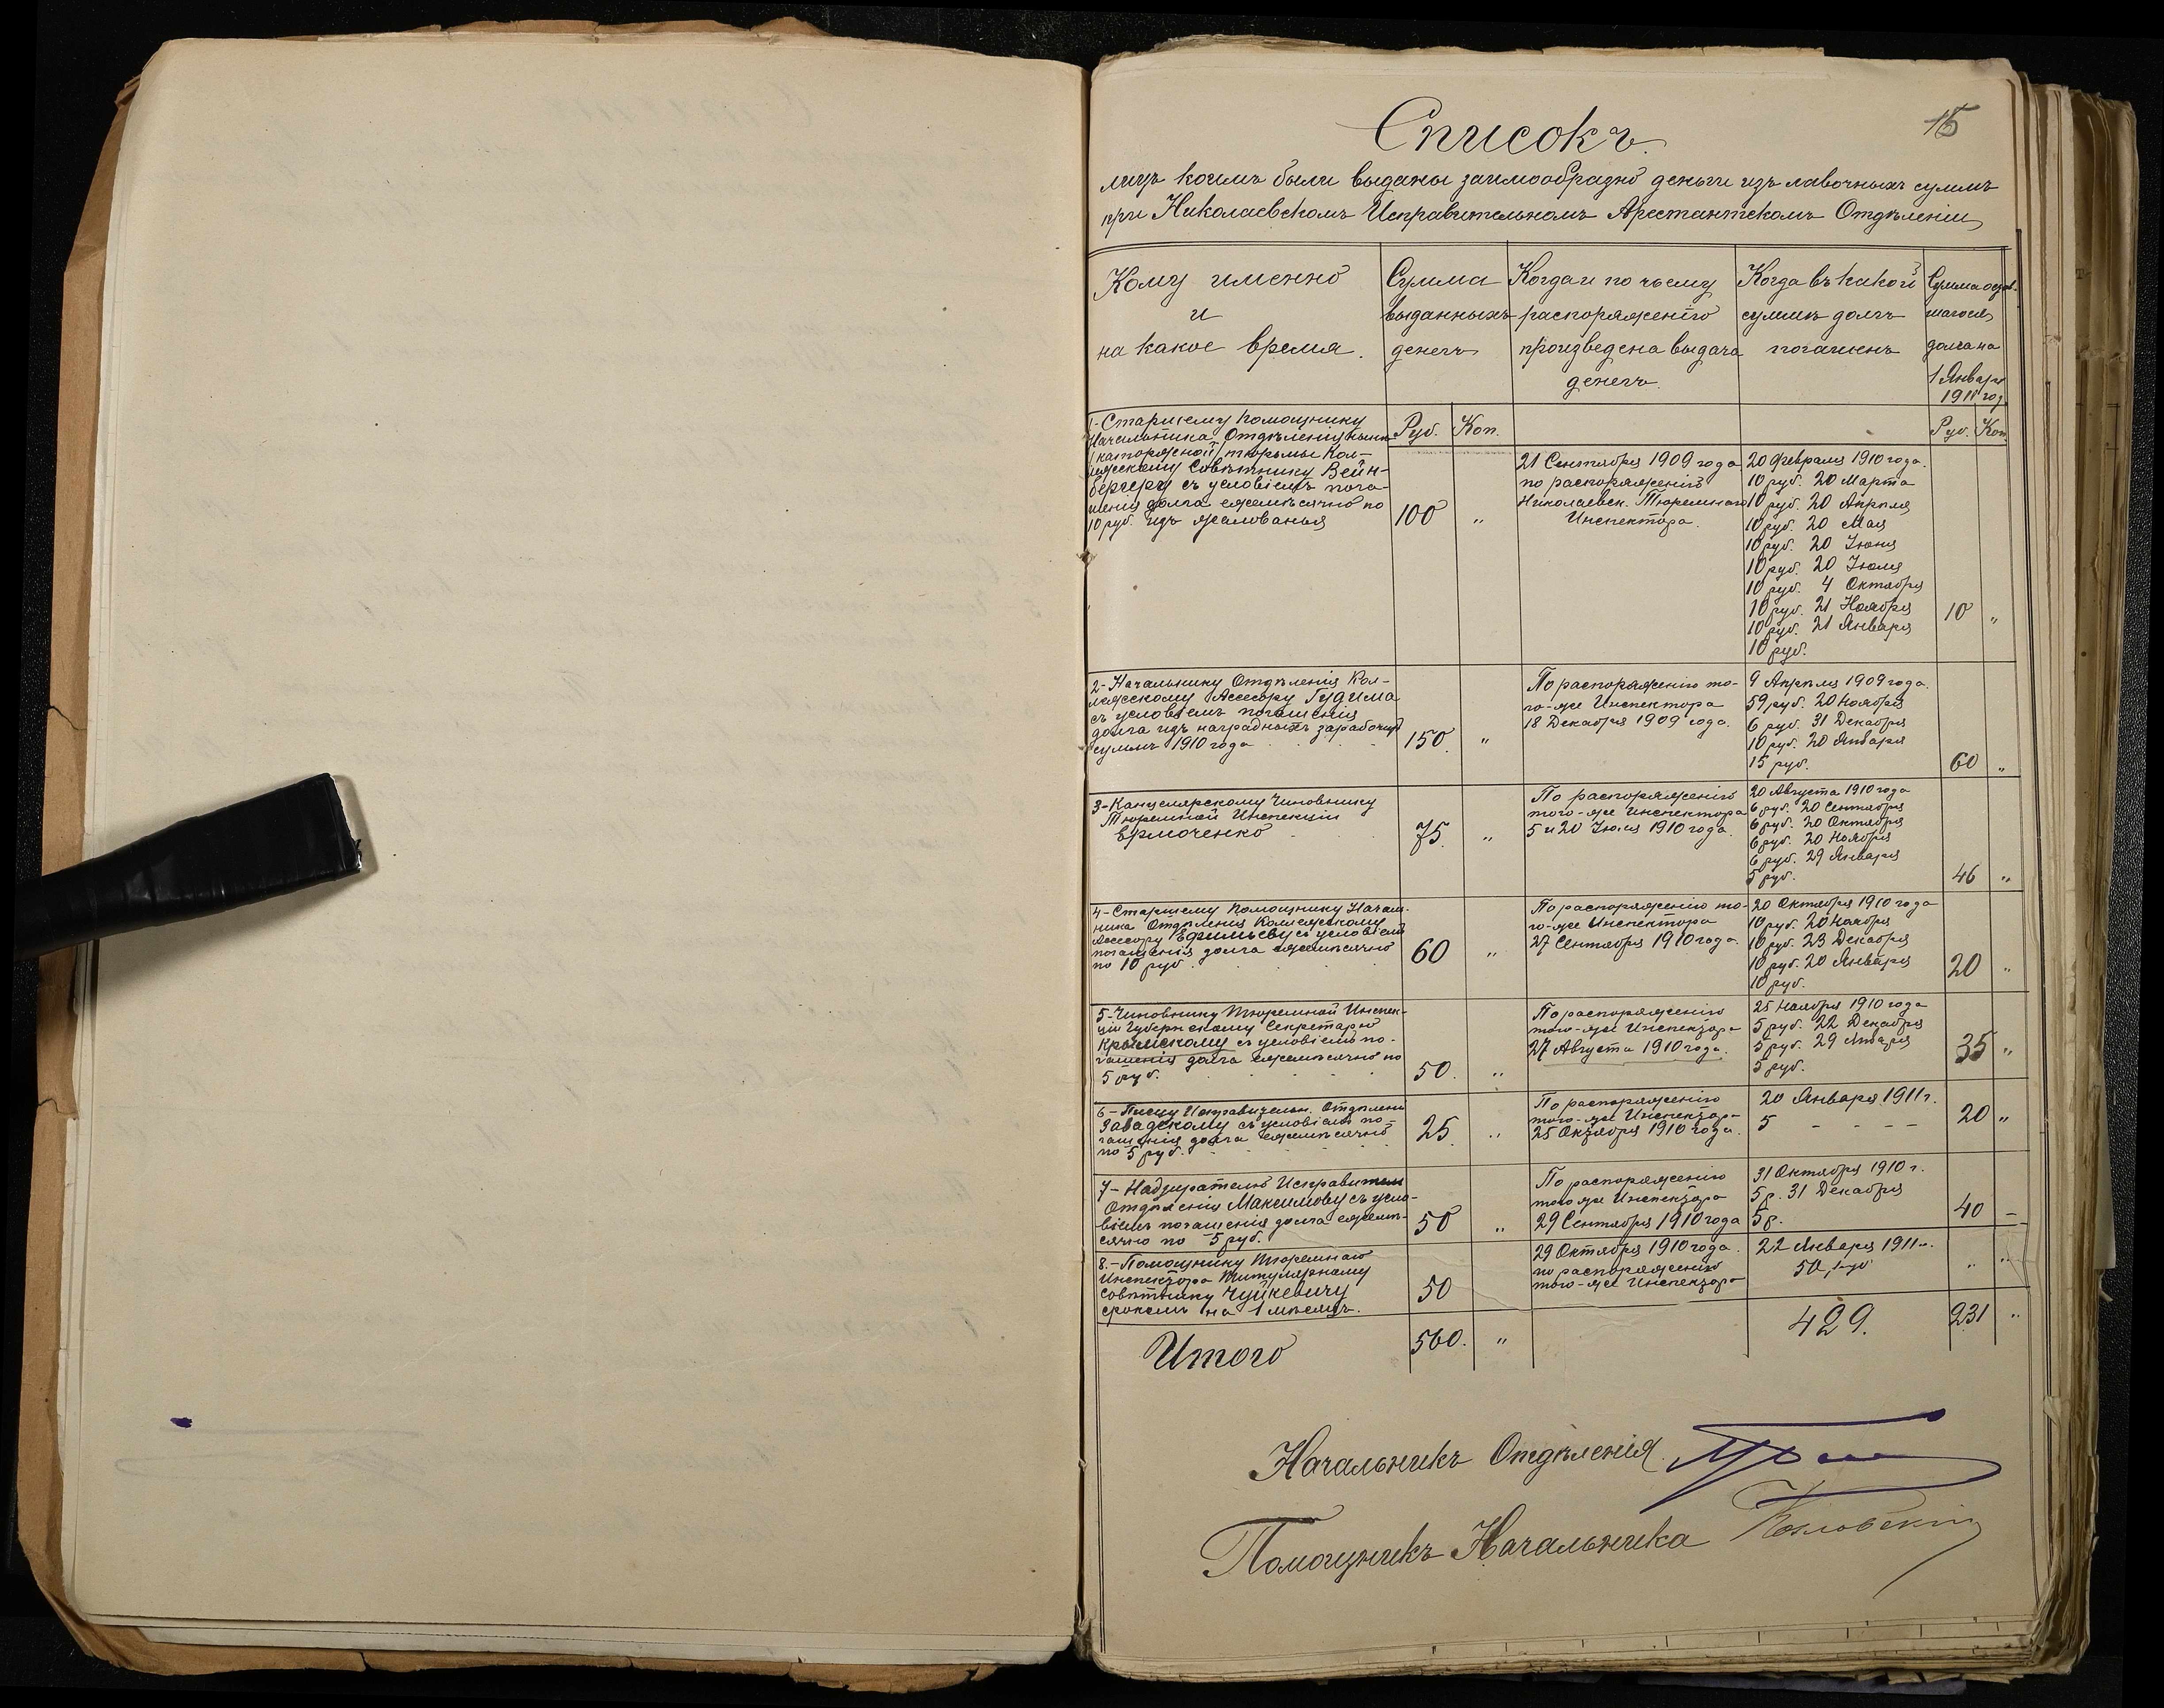 15
Списокъ
лицъ коимъ были выданы заимообразно деньги изъ лавочныхъ суммъ
при Николаевскомъ Исправительномъ Арестантскомъ Отдѣленіи
Кому именно
и
на какое время.
Сумма
выданныхъ
денегъ
Когда и по чьему
распоряженію
произведена выдача
денегъ.
Когда въ какой
суммѣ долгъ
погашенъ
Сумма остав-
шагося
долга на
1 Января
1911 год.
Руб. Коп.
Руб. Коп.
1- Старшему помощнику
Начальника Отдѣленія нынѣ
/каторжной/ тюрьмы Кол-
лежскому Совѣтнику Вейн-
бергеру съ условіемъ пога-
шенія долга ежемѣсячно по
10 руб. изъ жалованья
100 "
21 Сентября 1909 года
по распоряженію
Николаевск. Тюремнаго
Инспектора.
20 Февраля 1910 года.
10 руб. 20 Марта
10 руб. 20 Апрѣля
10 руб. 20 Мая
10 руб. 20 Іюня
10 руб. 20 Іюля
10 руб. 4 Октября
10 руб. 21 Ноября
10 руб. 21 Января
10 руб.
10 "
2- Начальнику Отдѣленія Кол-
лежскому Ассесору Гудима
съ условіемъ погашенія
долга изъ наградныхъ заработныхъ
суммъ 1910 года
150 "
По распоряженію то-
го-же Инспектора
18 Декабря 1909 года.
9 Апрѣля 1909 года.
59 руб. 20 Ноября
6 руб. 31 Декабря
10 руб. 20 Января
15 руб.
60 "
3- Канцелярскому чиновнику
Тюремной Инспекціи
Ермоченко
75 "
По распоряженію
того-же Инспектора
5 и 20 Іюля 1910 года.
20 Августа 1910 года
6 руб. 20 Сентября
6 руб. 20 Октября
6 руб. 20 Ноября
6 руб. 29 Января
5 руб.
46 "
4- Старшему помощнику Началь-
ника Отдѣленія Коллежскому
Ассесору Ефимьеву съ условіемъ
погашенія долга ежемѣсячно
по 10 руб.
60 "
По распоряженію то-
го-же Инспектора
27 Сентября 1910 года.
20 Октября 1910 года
10 руб. 20 Ноября
10 руб. 23 Декабря
10 руб. 20 Января
10 руб.
20 "
5- Чиновнику Тюремной Инспек-
ціи Губернскому Секретарю
Крымскому съ условіемъ по-
гашенія долга ежемѣсячно по
5 руб.
50. "
По распоряженію
того-же Инспектора
27 Августа 1910 года.
25 Ноября 1910 года
5 руб. 22 Декабря
5 руб. 29 Января
5 руб.
35 "
6- Писцу Исправительн. Отдѣлені
Завадскому съ условіемъ по-
гашенія долга ежемѣсячно
по 5 руб.
25 "
По распоряженію
того-же Инспектора
25 Октября 1910 года.
20 Января 1911 г.
5 - - - -
20 "
7- Надзирателю Исправител
Отдѣленія Максимову съ усло-
віемъ погашенія долга ежемѣ-
сячно по 5 руб.
50 "
По распоряженію
того же Инспектора
29 Сентября 1910 года
31 Октября 1910 г.
5 р. 31 Декабря
5 р.
40 -
8.- Помощнику Тюремнаго
Инспектора Титулярному
Совѣтнику Чуйкевичу
срокомъ на 1 мѣсяцъ.
50
29 Октября 1910 года.
по распоряженію
того-же Инспектора
22 Января 1911 г.
50 руб
" "
Итого
560. "
429.
231 "
Начальникъ Отдѣленія
Помощникъ Начальника Козловскій